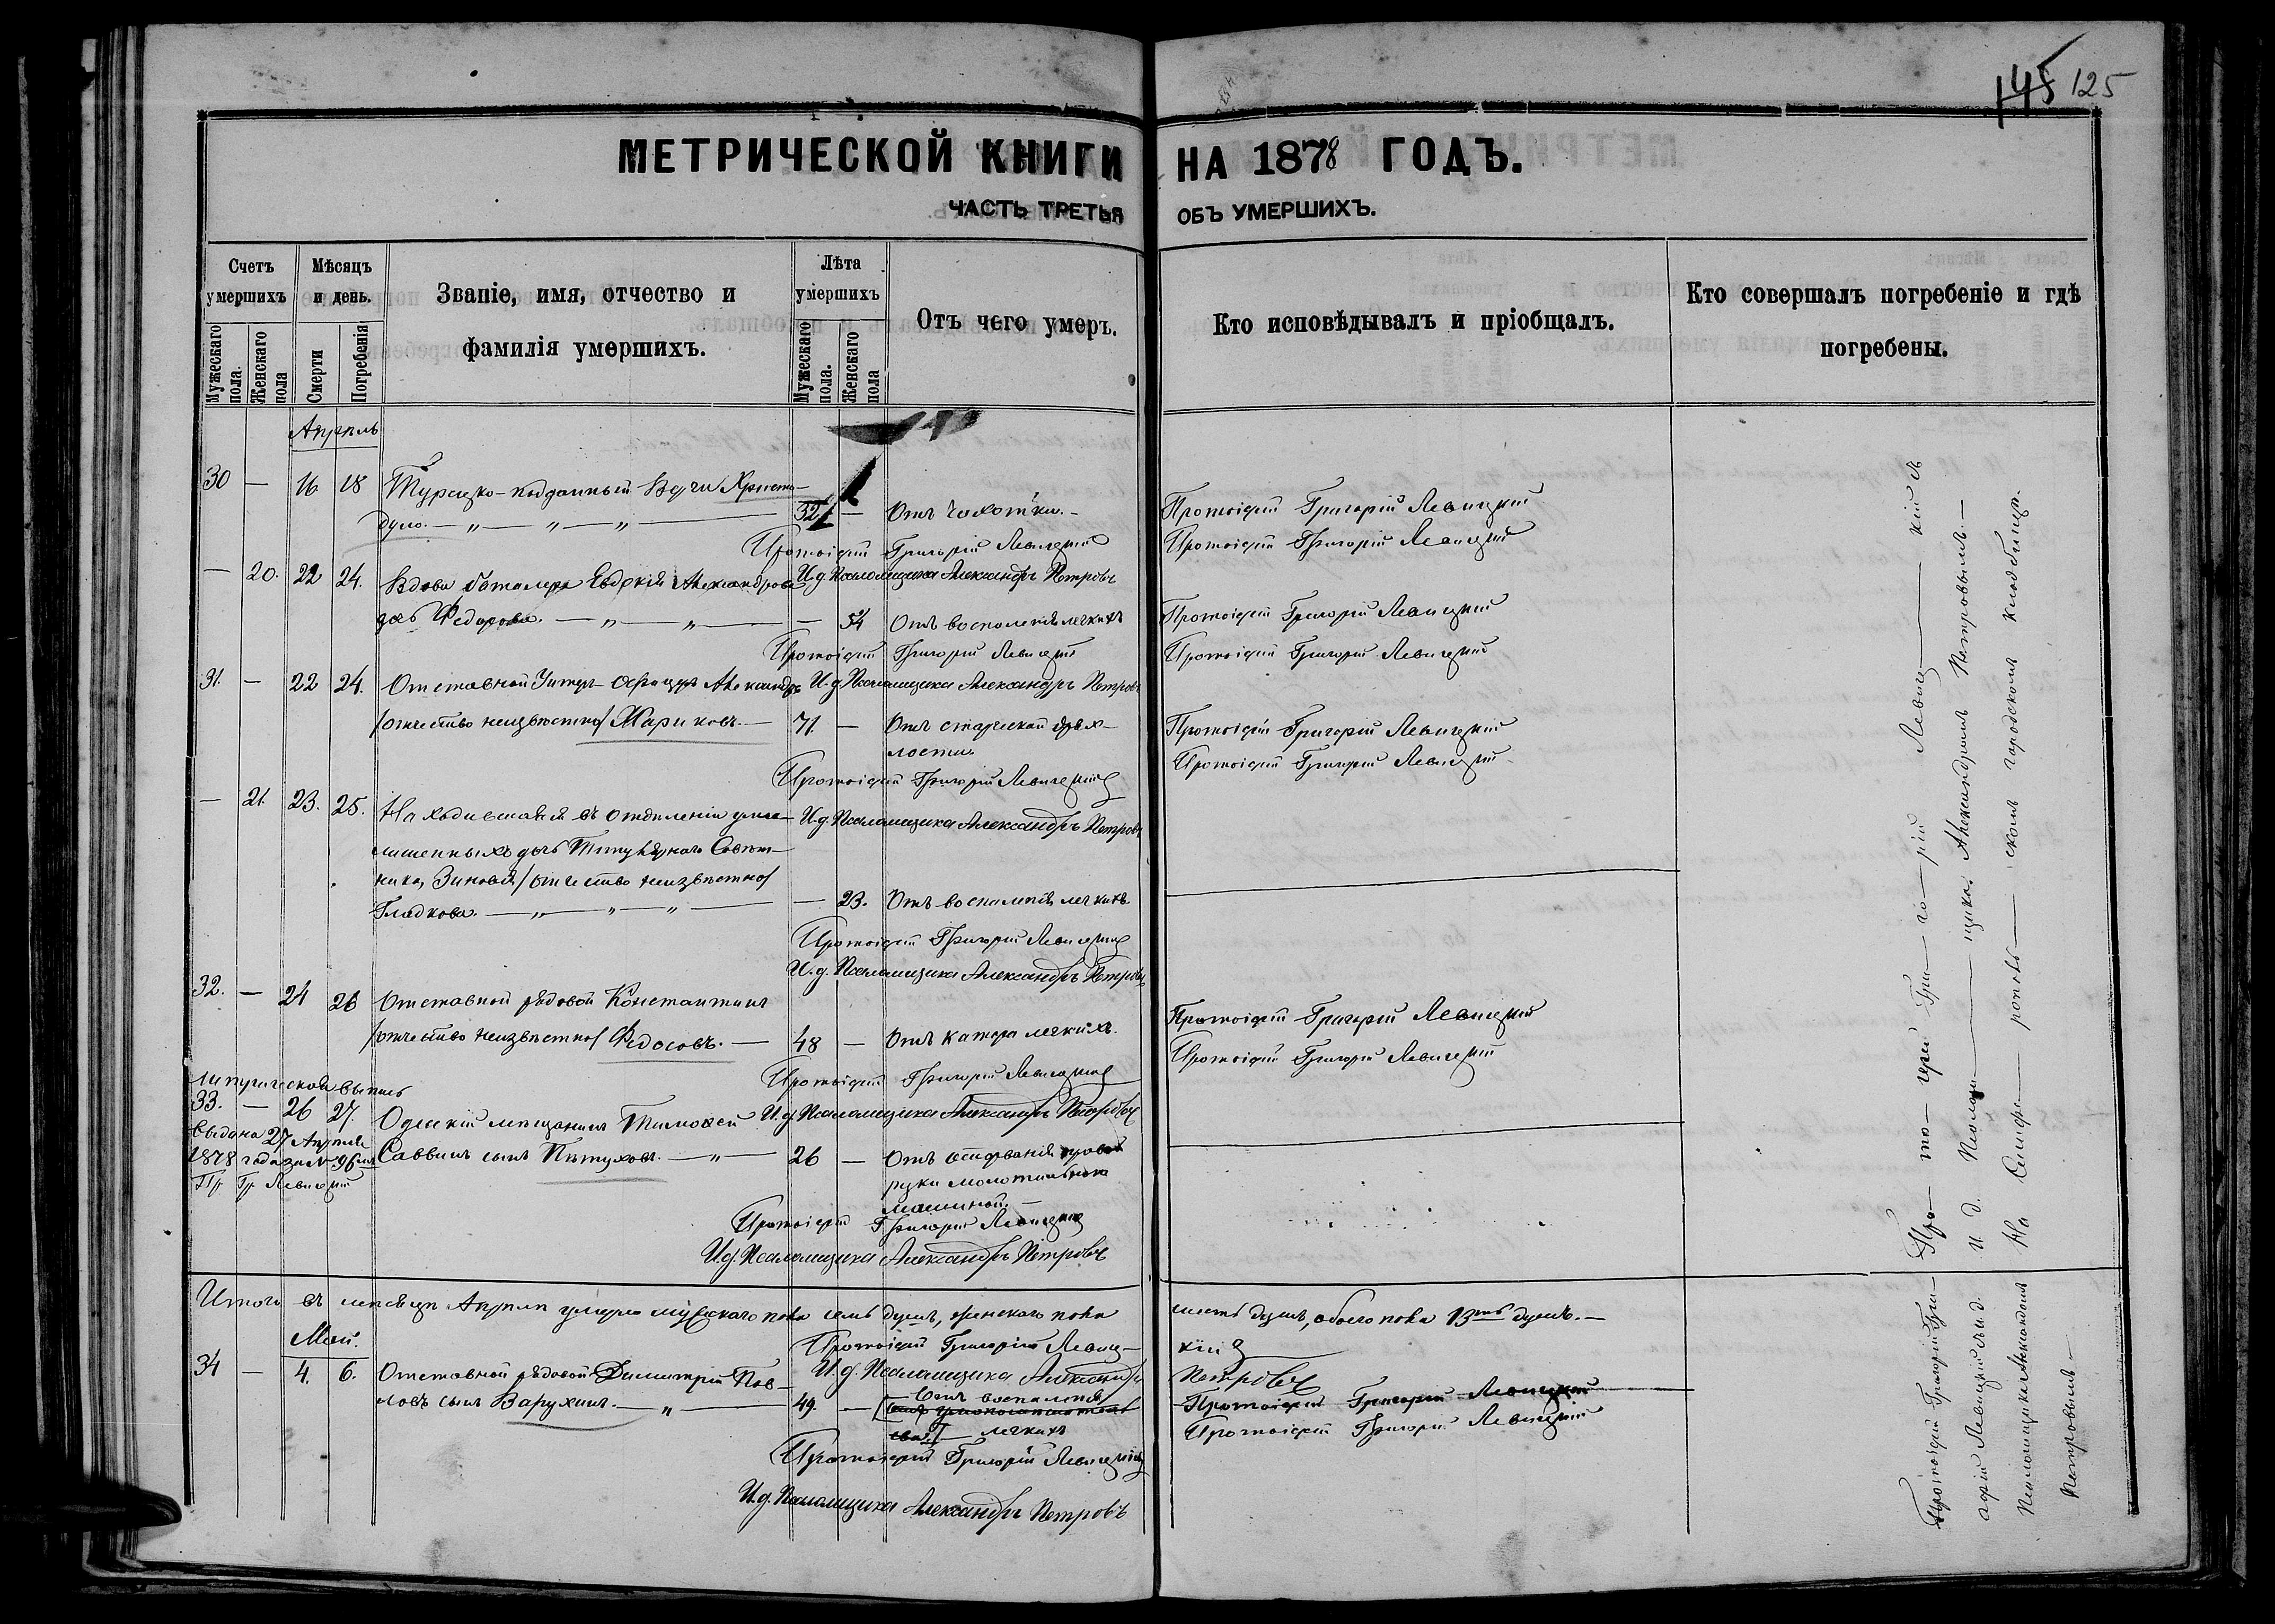 145 125
МЕТРИЧЕСКОЙ КНИГИ НА 1878 ГОДЪ.
ЧАСТЬ ТРЕТЬЯ ОБЪ УМЕРШИХЪ.
Счетъ умершихъ
Мужескаго пола.
Женскаго пола
Мѣсяцъ и день.
Смерти
Погребенія
Званіе, имя, отчество и
фамилія умершихъ.
Лѣта умершихъ
Мужескаго пола.
Женскаго пола
Отъ чего умеръ.
Кто исповѣдывалъ и пріобщалъ.
Кто совершалъ погребеніе и гдѣ
погребены.
Апрѣль
30 — 16 18 Турецко-подданный Христо-
дуло. — „ — „ — „ — 52 — Отъ чахотки. — Протоіерей Григорій Левицкій
Протоіерей Григорій Левицкій Протоіерей Григорій Левицкій
— 20. 22 24. Вдова баталера Евдокія Александрова И. д. Псаломщика Александръ Петровъ
дочь Федорова. — „ — „ — — 54 Отъ воспаленія легкихъ Протоіерей Григорій Левицкій
Протоіерей Григорій Левицкій Протоіерей Григорій Левицкій
31. — 22 24. Отставной Унтеръ-офицеръ Александръ И. д. Псаломщика Александръ Петровъ
/отчество неизвѣстно/ Мариковъ. — 71. — Отъ старческой дрях- Протоіерей Григорій Левицкій
лости.
Протоіерей Григорій Левицкій Протоіерей Григорій Левицкій
— 21. 23. 25. Находившаяся въ отдѣленіи умо- И. д. Псаломщика Александръ Петровъ
лишенныхъ дочь Титулярнаго Совѣт-
ника, Зиновія /отчество неизвѣстно/
Гладкова. — „ — „ — „ — — 23. Отъ воспаленія легкихъ.
Протоіерей Григорій Левицкій
И. д. Псаломщика Александръ Петровъ
32. — 24 26 Отставной рядовой Константинъ
/отчество неизвѣстно/ Федосовъ. — 48 — Отъ катара легкихъ. Протоіерей Григорій Левицкій
Протоіерей Григорій Левицкій Протоіерей Григорій Левицкій
33. — 26 27. Одесскій мѣщанинъ Тимофей И. д. Псаломщика Александръ Петровъ
Саввинъ сынъ Пѣтуховъ. — „ — 26 — Отъ правой
руки молотильною
машиной. —
выдана 27 Апрѣля
1878 года за № 96
Пр. Гр. Левицкій
Протоіерей Григорій Левицкій
И. д. Псаломщика Александръ Петровъ
Итого въ мѣсяцѣ Апрѣлѣ умерло мужскаго пола семь душъ, женскаго пола шесть душъ, обоего пола 13ть душъ. —
Протоіерей Григорій Левиц- кій
И. д. Псаломщика Александръ Петровъ
Май.
34 — 4. 6. Отставной рядовой Димитрій Пав-
ловъ сынъ Варухинъ. — „ — 49. — Отъ воспаленія
легкихъ
Протоіерей Григорій Левицкій
Протоіерей Григорій Левицкій
Протоіерей Григорій Левицкій
И. д. Псаломщика Александръ Петровъ
Про- то- іерей Гри- го- рій Левиц- кій съ
И. д. Псалом- щика Александромъ Петровымъ. —
На Симфе- рополь- скомъ городскомъ кладбищѣ.
Протоіерей Григорій Левицкій съ и. д.
Псаломщика Александромъ
Петровымъ —